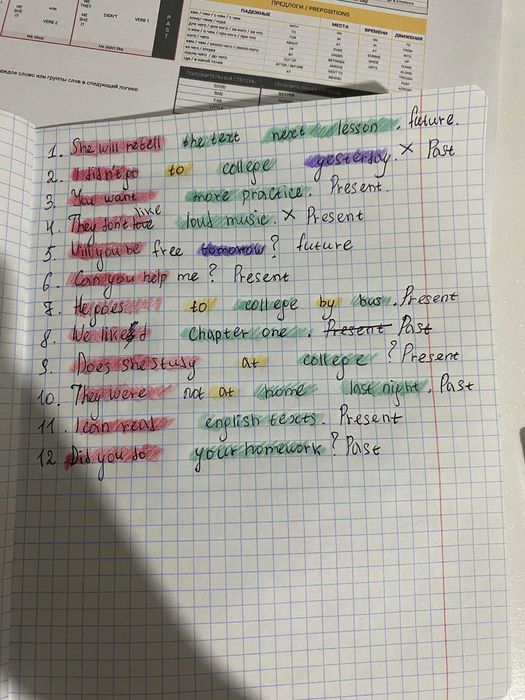 HE
SHE
IT
VERB 2
HE
SHE
IT
DIDN'T
VERB 1
PAST
He liked
He didn't like
ПРЕДЛОГИ / PREPOSITIONS
ПАДЕЖНЫЕ
МЕСТА
ВРЕМЕНИ
ДВИЖЕНИЯ
GOOD
BAD
BETTER
каждое слово или группы слов в следующей логике:
1. She will retell the text next lesson. future.
2. I didn't go to college yesterday. × Past
3. You want more practice. Present.
4. They don't love like loud music. × Present
5. Will you be free tomorrow? future
6. Can you help me? Present
7. He goes to college by bus. Present
8. We liked Chapter one. Present Past
9. Does she study at college? Present
10. They were not at home last night. Past
11. I can read english texts. Present
12. Did you do your homework? Past